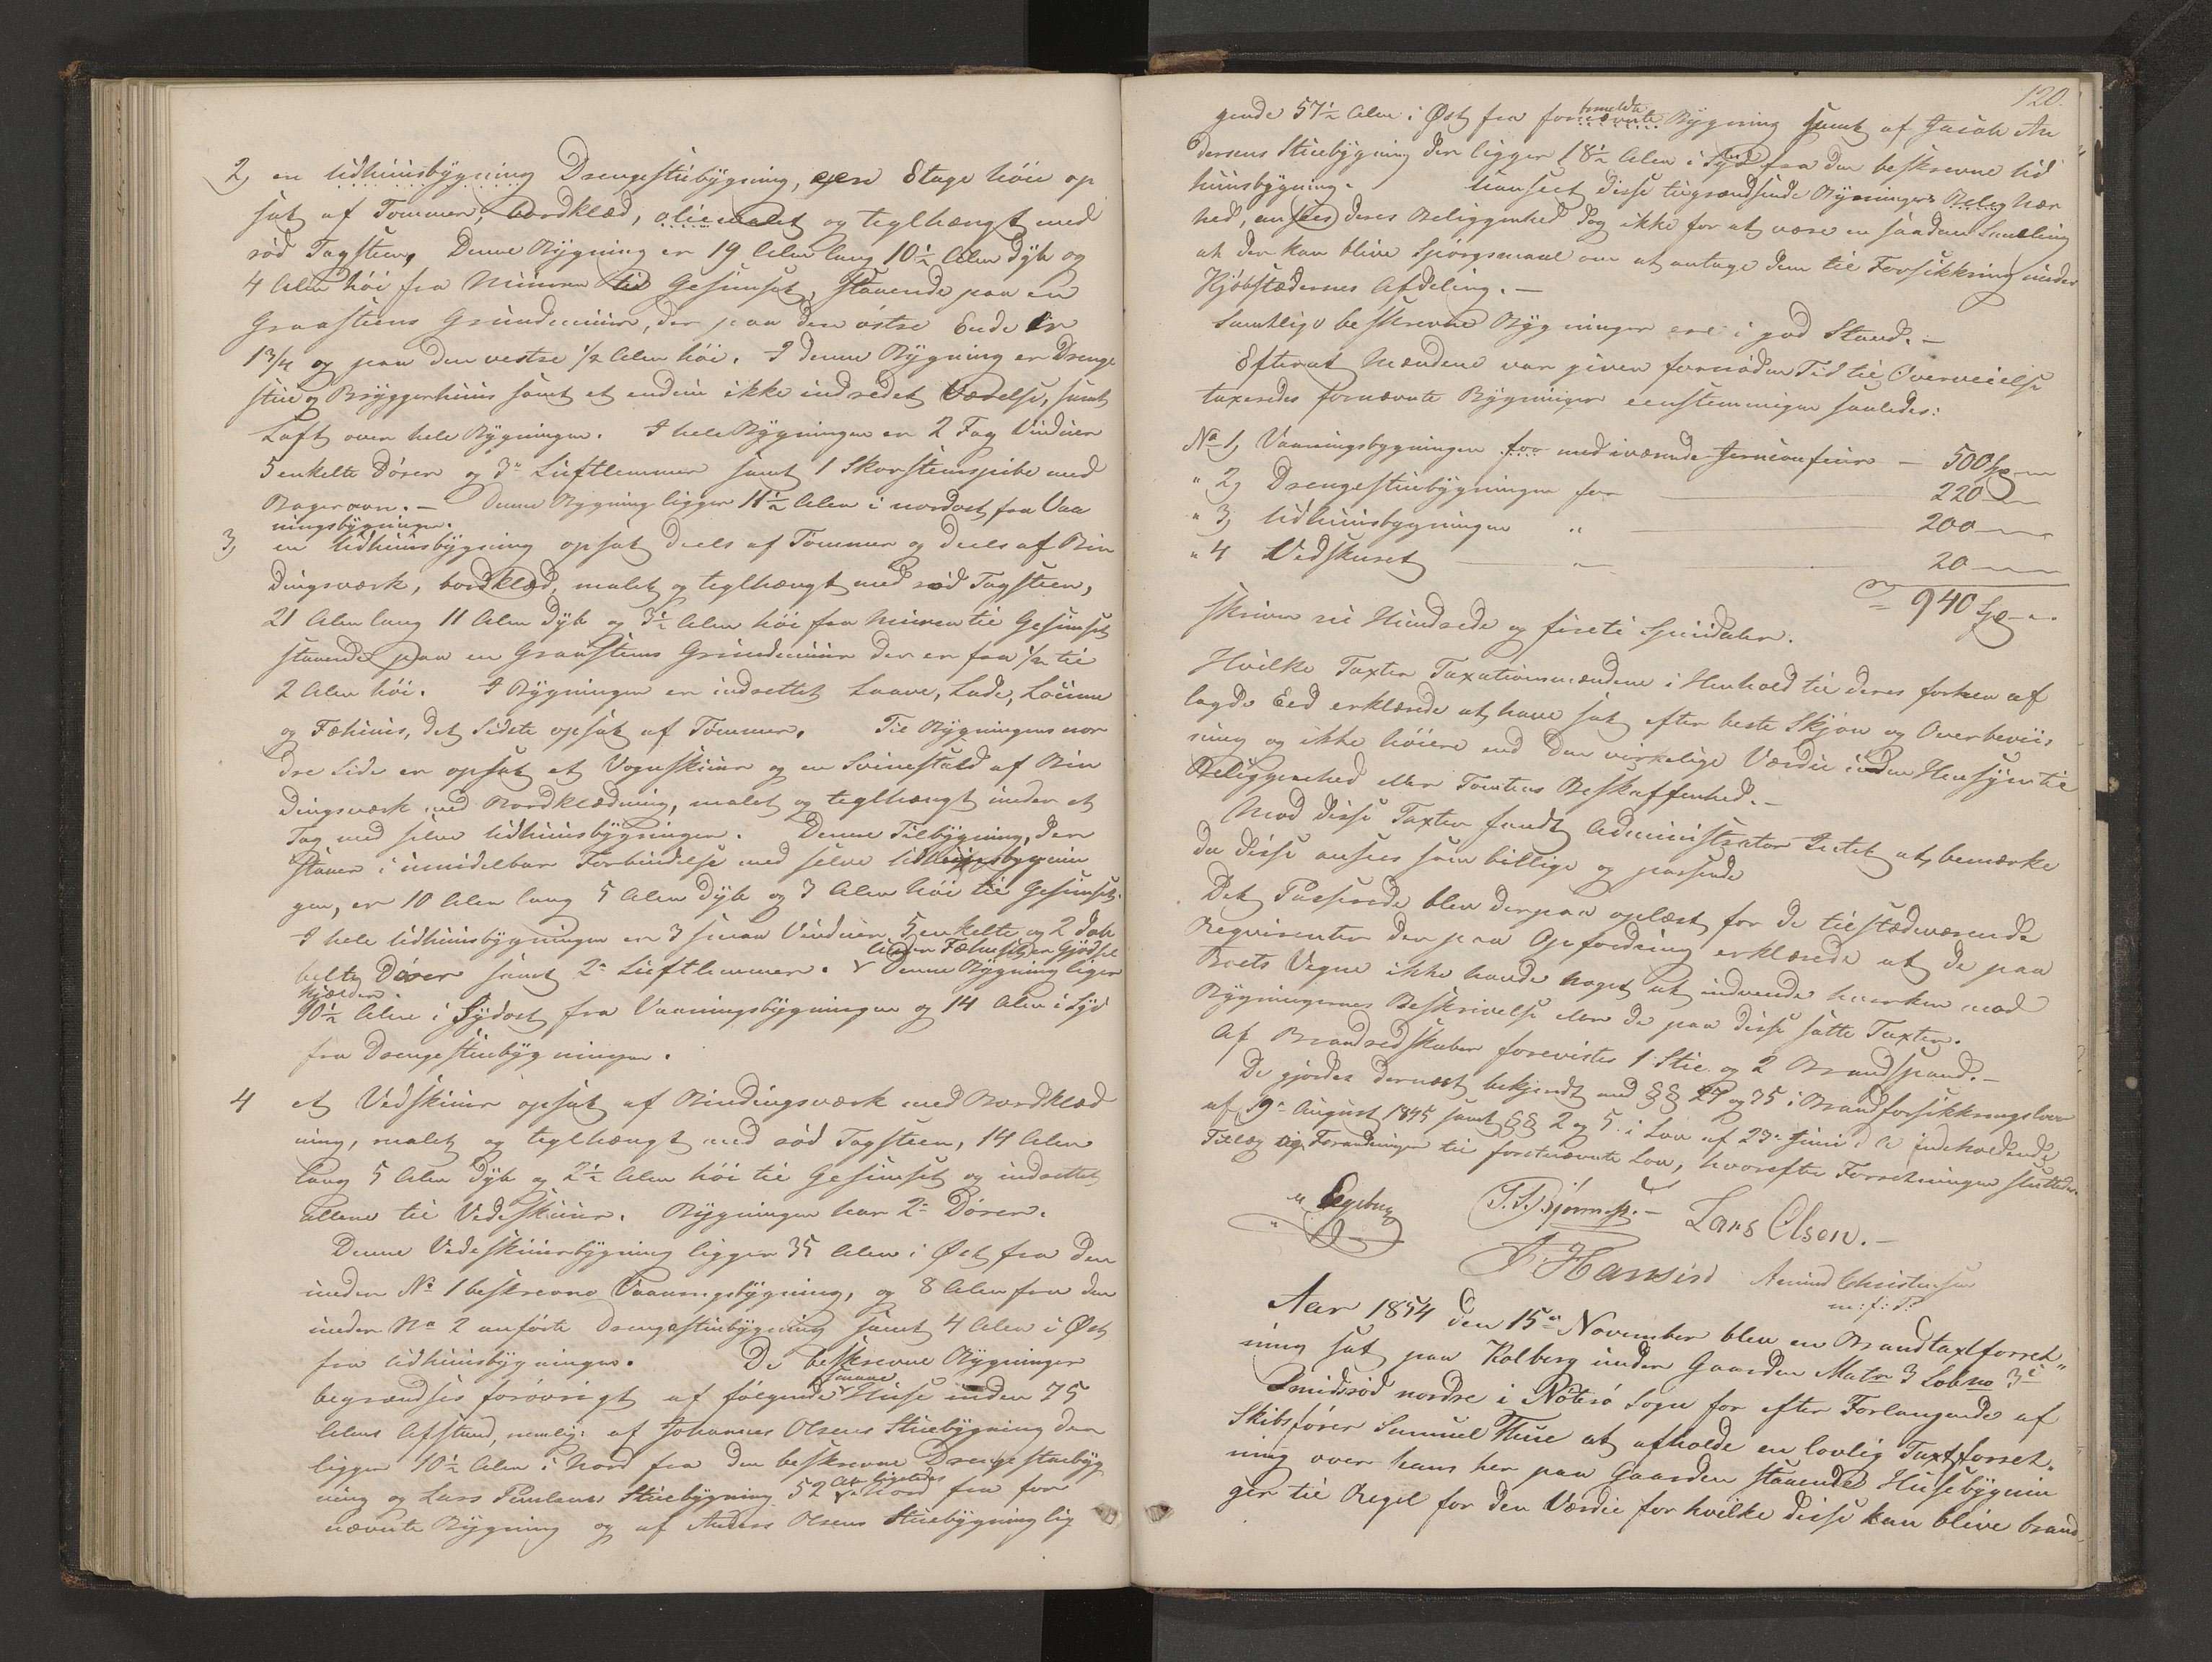 2, en Udhuusbygning Drengestuebygning, een Etage höi op
sat af Tömmer, bordklæd, oliemalet og teglhængt med
röd Tagsteen, Denne Bygning er 19 Alen lang 10½ Alen dyb og
4 Alen höi fra Muren til Gesimset, staaende paa en
Graasteens Grundmuur, der paa den östre Ende er
1 3/4 og paa den vestre 1/2 Alen höi. I denne Bygning er Drenge
stue og Bryggerhuus samt et endnu ikke indredet Værelse, samt
Loft over hele Bygningen. I hele Bygningen er 2 Fag Vinduer
5 enkelte Dörer og 3de Luftlemmer samt 1 Skorsteenspibe med
Bagerovn. – Denne Bygning ligger 11½ Alen i nordost fra Vaa
ningsbygningen.
3, en Udhuusbygning opsat deels af Tömmer og deels af Bin
dingsværk, bordklæd, malet og teglhængt med röd Tagsteen,
21 Alen lang 11 Alen dyb og 3½ Alen höi fra Muren til Gesimset
staaende paa en Graasteens Grundmuur der er fra 1/2 til
2 Alen höi. I Bygningen er indrettet Laave, Lade, Loümme
og Fæhuus, det sidste opsat af Tömmer. Til Bygningens nor
dre Side er opsat et Vognskuur og en Svinestald af Bin
dingsværk med Bordklædning, malet og teglhængt under et
Tag med selve Udhuusbygningen. Denne Tilbygning, der
staaer i umidelbar Forbindelse med selve Udhuusbygnin
gen, er 10 Alen lang 5 Alen dyb og 3 Alen höi til Gesimset.
I hele Udhuusbygningen er 3 smaa Vinduer 5 enkelte og 2 dob
under Fæhuset er Gjödsel
belte Dörer samt 2de Luftlemmer. Denne Bygning ligger
kjelder
30½ Alen i Sydost fra Vaaningsbygningen og 14 Alen i Syd
fra Drengestuebygningen.
4 et Vedskuur opsat af Bindingsværk med Bordklæd
ning, malet og teglhængt med röd Tagsteen, 14 Alen
lang 5 Alen dyb og 2½ Alen höi til Gesimset og indrettet
allene til Vedeskuur. Bygningen har 2de Dörer.
Denne Vedeskuurbygning ligger 35 Alen i Öst fra den
under No 1 beskrevne Vaaningsbygning, og 8 Alen fra den
under No 2 anförte Drengestuebygning samt 4 Alen i Öst
fra Udhuusbygningen. De beskrevne Bygninger
smaae
begrændses forövrigt af fölgende Huse inden 75
Alens Afstand, nemlig: af Johannes Olsens Stuebygning der
ligger 10½ Alen i Nord fra den beskrevne Drengestuebyg
ning og Lars Paulsens Stuebygning 52 Al. ligeledes i Nord fra for
nævnte Bygning og af Anders Olsens Stuebygning lig
120.
gende 57½ Alen i Öst fra formeldte fornævnte Bygning samt af Jacob An
dersens Stuebygning der ligger 18½ Alen i Syd fra den beskrevne Ud
huusbygning. Uanseet disse tilgrændsende Bygningers Belig Nær
hed, ansees deres Beliggenhed dog ikke for at være en saadan Samling
at der kan blive Spörgsmaal om at antage dem til Forsikkring under
Kjöbstædernes Afdeling. –
Samtlige beskrevne Bygninger ere i god Stand. –
Efterat Mændene var given fornöden Tid til Overveielse
taxeredes fornævnte Bygninger eenstemmigen saaledes:
No 1, Vaaningsbygningen for med iværende Jernkomfuur – 500 Spd
" 2, Drengestuebygningen for 220
" 3, Udhuusbygningen " 200
" 4 Vedskuret " 20
= 940 Spd
skriver ni Hundrede og fireti Speciedaler.
Hvilke Taxter Taxationsmændene i Henhold til deres forhen af
lagde Eed erklærede at have sat efter beste Skjön og Overbeviis
ning og ikke höiere end den virkelige Værdie uden Hensyn til
Beliggenhed eller Tomtens Beskaffenhed. –
Mod disse Taxter fandt Administrator Intet at bemærke
da disse ansees som billige og passende
Det Passerede blev derpaa oplæst for de tilstædeværende
Requirenter der paa Opfordring erklærede at de paa
Boets Vegne ikke havde noget at indvende hverken mod
Bygningernes Beskrivelse eller de paa disse satte Taxter.
Af Brandredskaber forevistes 1 Stie og 2 Brandspand. –
De gjordes dernæst bekjendt med §§ 27 og 75 i Brandforsikkringsloven
af 19de August 1845 samt §§ 2 og 5 i Lov af 23de Juni d A indeholdende
Tillæg og Forandringer til förstnævnte Lov, hvorefter Forretningen sluttedes
Lars Olsen. –
J. Hansen Amund Christensen
m: f: P:
Aar 1854 den 15de November blev en Brandtaxtforret„
ning sat paa Kolberg under Gaarden Matr 3 Löbno 3c
Smidsröd nordre i Nöterö Sogn for efter Forlangende af
Skibsförer Samuel Thue at afholde en lovlig Taxtforret„
ning over hans her paa Gaarden staaende Huusebygnin
ger til Regel for den Værdie for hvilke disse kan blive brand